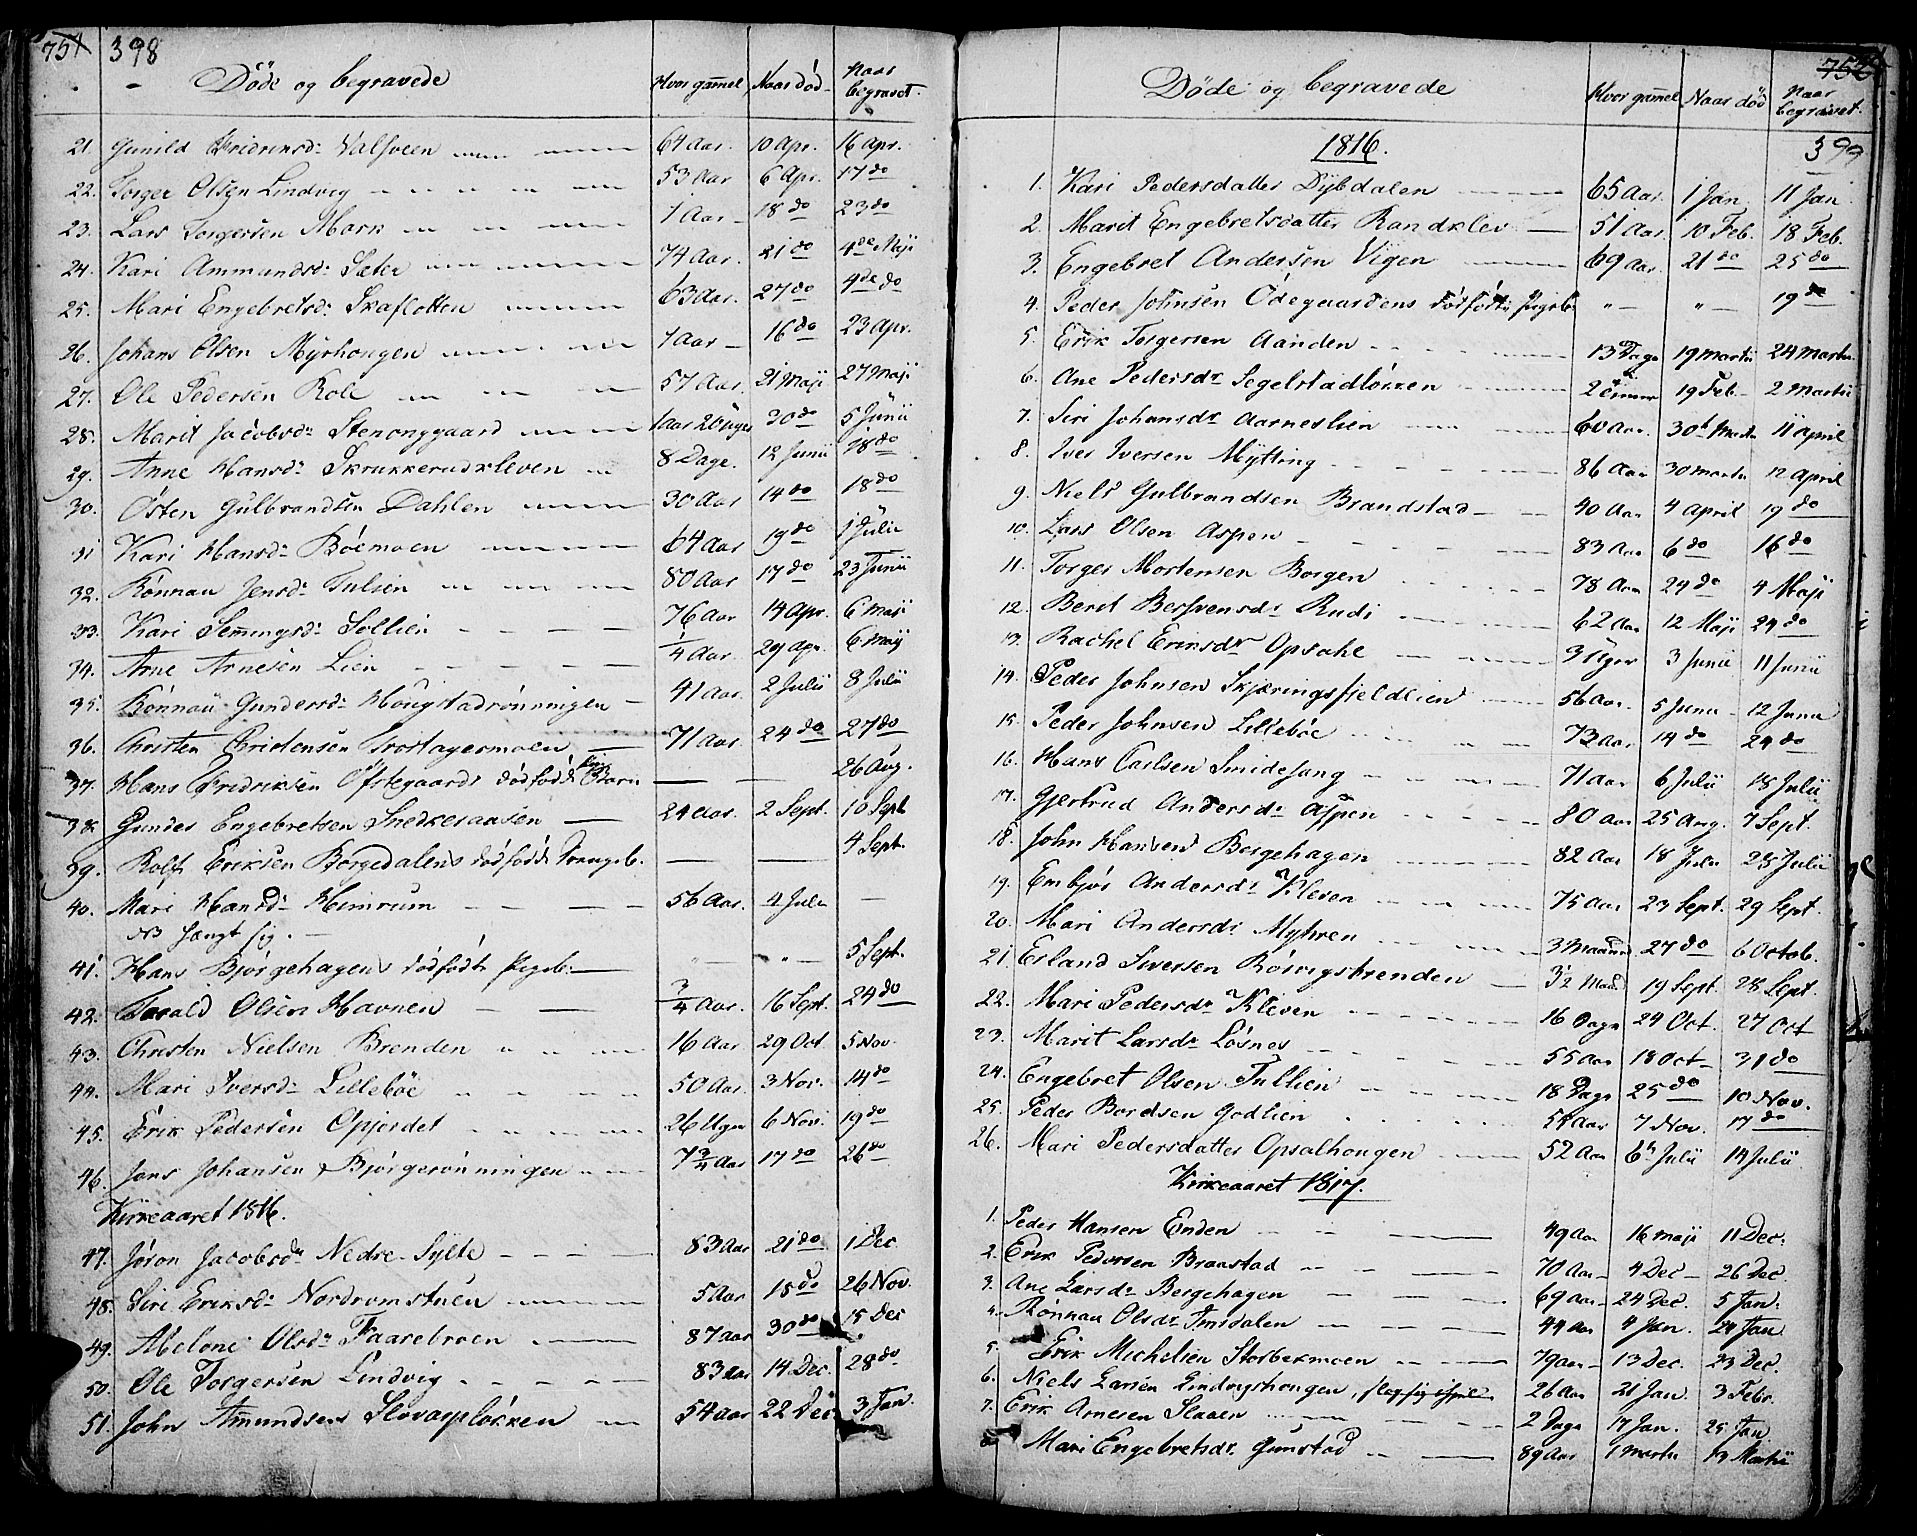 751 398
Döde og begravede Hvor gammel Naar död Naar begravet
21. Gunild Fridrinsd: Valsveen 64 Aar. 10 Apr. 16 Apr.
22. Torger Olsen Lindvig 53 Aar 6 Apr. 17 do
23. Lars Torgersen Mark 1 Aar 18 do 23 do
24. Kari Ammundsd: Sæter 74 Aar. 21 do 4de Maji
25. Mari Engebretsd: Skaflotten 63 Aar. 27 do 4de do
26. Johans Olsen Myrhongen 1 Aar 16 do 23 Apr.
27. Ole Pedersen Kole 57 Aar. 21 Maji 27 Maji
28. Marit Jacobsd: Stenonggaard 1 Aar 20 Uger 30 do 5 Junii
29. Anne Hansd: Skrukkerudkleven 8 Dage. 12 Junii 18 do
30. Østen Gulbrandsen Dahlen 30 Aar 14 do 18 do
31 Kari Hansd: Böemoen 64 Aar 19 do 1 Julii
32. Rönnau Jensd: Tulien 80 Aar 17 do 23 Junii
33. Kari Semingsd: Sollien 76 Aar 14 Apr. 6 Maji
34. Arne Arnesen Lien 1/4 Aar. 29 Apr. 6 Maij
35. Rönnau Gundersd: Hougstadrönningen 41 Aar. 2 Julii 8 Julii
36. Christen Christensen Trostagermoen 71 Aar. 24 do 27 do
37. Hans Fridriksen Öfstegaards dödfödt Barn 26 Aug.
38. Gunder Engebretsen Snedkeraasen 24 Aar. 2 Sept. 10 Sept
39. Rolf Eriksen Borgedalens dödfödt Drengeb. 4 Sept.
40. Mari Hansd: Heimrum 56 Aar. 4 Julii
NB hængt sig.
41. Hans Bjørgehagens dödfödt Pigeb: 5 Sept.
42. Torald Olsen Havnen 3/4 Aar. 16 Sept. 24 do
43. Christen Nielsen Brenden 16 Aar 29 Oct. 5 Nov.
44. Mari Iversd: Lilleböe 50 Aar. 3 Nov. 14 do
45. Erik Pedersen Opjordet 26 Uger 6 Nov. 19 do
46. Jens Johansen Bjørgerönningen 7 3/4 Aar 17 do 26 do
Kirkeaaret 1816.
47. Jøron Jacobsdr Nedre Sylte 83 Aar 21 do 1 Dec
48. Siri Eriksd: Nordromstuen 5 Aar 18 do 26 Nov.
49. Melone Olsdr Faarebroen 87 aar 30 do 15 Dec
50. Ole Torgersen Lindvig 83 aar 14 Dec. 28 do
51. John Amundsen Slovarpløkken 54 aar 22 Dec 3 Jan.
752
Döde og begravede Hvor gammel Naar död Naar begravet.
1816. 399
1. Kari Pedersdatter Dybdalen 65 Aar. 1 Jan. 11 Jan.
2. Marit Engebretsdatter Randklev 51 Aar. 10 Feb. 18 Feb.
3. Engebret Andersen Vigen 69 Aar. 21 do 25 do
4. Peder Johnsen Ödegaardens dödfödte Pigeb. 19 do
5. Erik Torgersen Aanden 13 Dage 19 Martii 24 Martii
6. Ane Pedersdr Segelstadløkken 19 Feb. 2 Martii
7. Siri Johansdr Aarneslien 60 Aar. 30t Martii 11 April
8. Iver Iversen Mytting 86 Aar 30 Martii 12 April
9. Niels Gulbrandsen Brandstad 40 Aar 4 April 19 do
10. Lars Olsen Aspen 83 Aar 6 do 16 do
11. Torger Mortensen Borgen 78 Aar 24 do 4 Maji
12. Berit Bersvensdr Rudi 62 Aar 12 Maji 24 do
13. Rachel Eriksdr Opsahl 3 Uger 3 Junii 11 Junii
14. Peder Johnsen Skjæringsfjeldlien 56 Aar. 5 Junii 12 Junii
15. Peder Johnsen Lilleböe 73 Aar 14 do 24 do
16. Hans Carlsen Smidesang 71 Aar 6 Julii 18 Julii
17. Gjertrud Andersd: Aspen 80 Aar 25 Aug. 7 Sept.
18. John Hansen Bergehagen 82 Aar 18 Julii 28 Julii
19. Embjør Andersd: Kleven 75 Aar 23 Sept. 29 Sept.
20. Mari Andersdr Myhren 3 Maaned 27 do 6 Octob.
21. Erland Iversen Röwigsbrenden 3 1/2 Maaned 19 Sept. 28 Sept.
22. Mari Pedersdr Kleven 16 Dage 24 Oct. 27 Oct
23. Marit Larsdr Løsnes 55 Aar 18 Oct 31 do
24. Engebret Olsen Tullien 18 Dage 25 do 10 Nov.
25. Peder Bordsen Godlien Aar 7 Nov. 17 do
26. Mari Pedersdatter Opsalhongen 52 Aar 6t Julii 14 Julii
Kirkeaaret 1817.
1. Peder Hansen Enden 49 Aar 16 Maji 11 Dec.
2. Erik Pedersen Braastad 70 Aar 4 Dec 26 Dec
3. Ane Larsdr Bergehagen 69 Aar 24 Dec. 5 Jan.
4. Rönnau Olsdr Imsdalen 44 Aar 4 Jan. 24 Jan
5. Erik Michelsen Storbekmoen 79 Aar 13 Dec. 23 Dec.
6. Niels Larsen Lindvigshongen, 26 Aar 21 Jan 3 Febr.
7. Erik Arnesen Slaaen 2 Dage 17 Jan. 25 Jan
8 Mari Engebretsdr. Gunstad 89 Aar 1 Martii 13 Martii